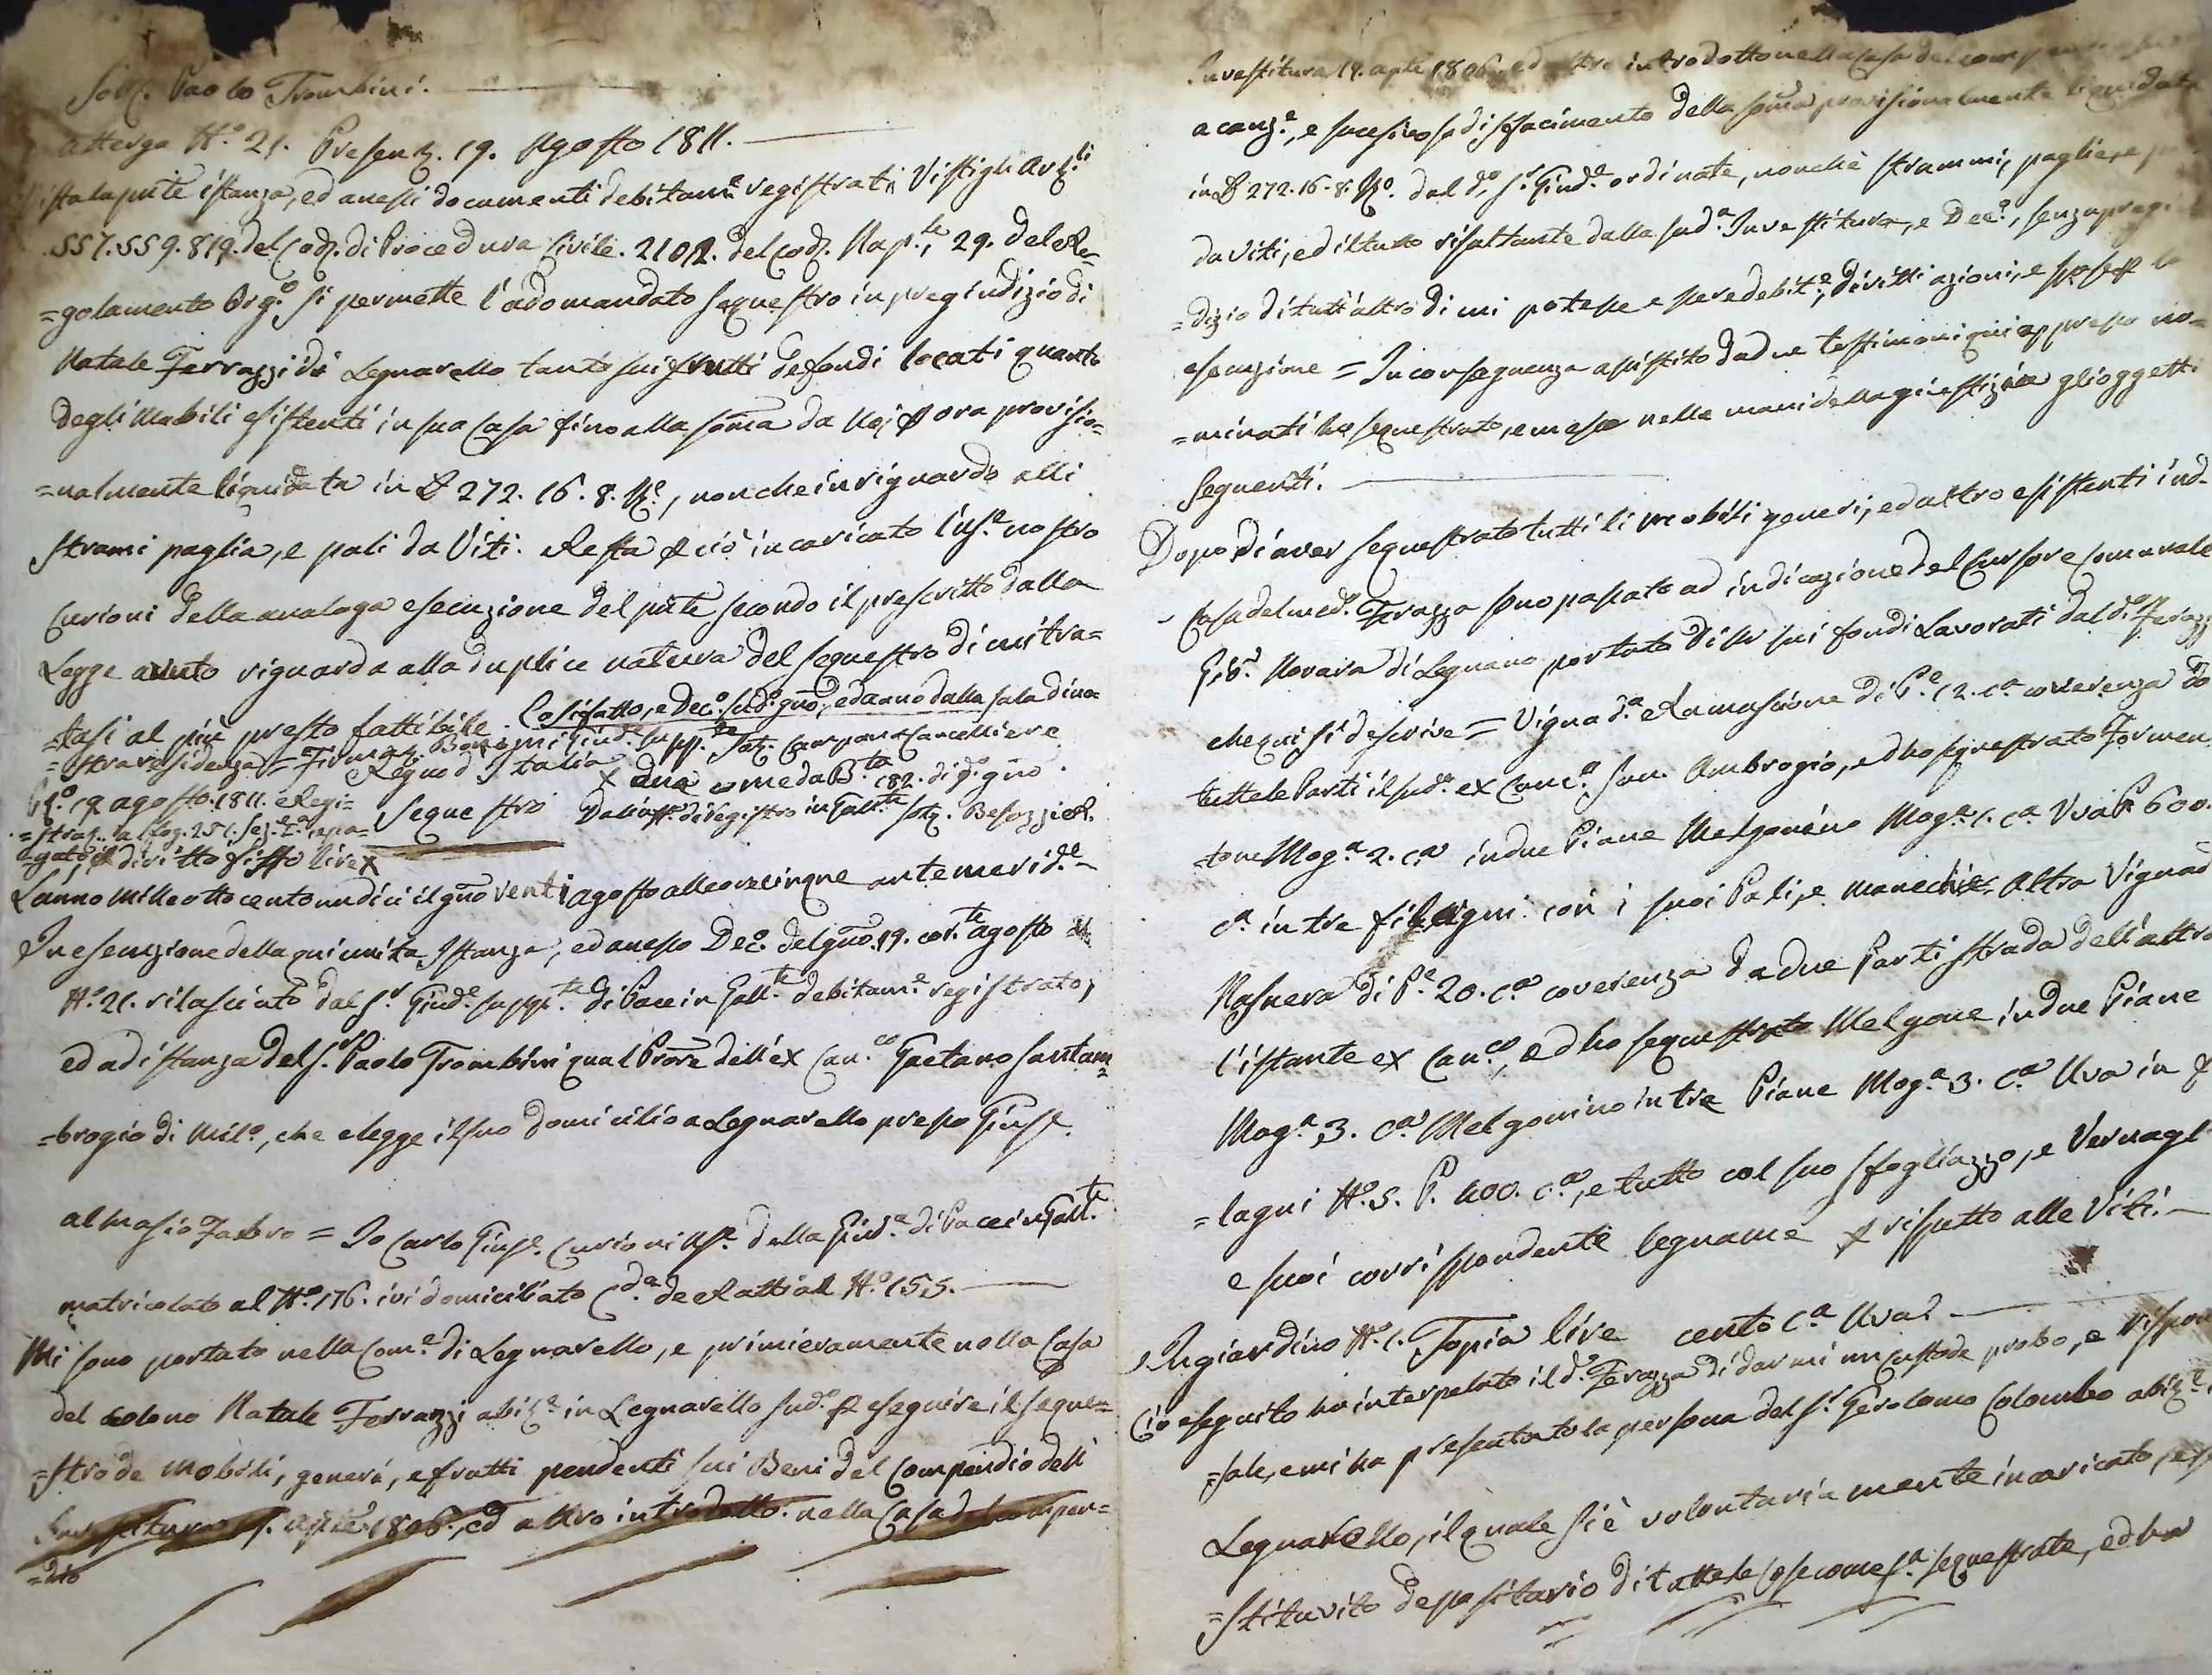 Sott. Paolo Trombini.
atterga N.° 21. Presen. 19. Agosto 1811.
Vista la pnte istanza, ed anessi documenti debitam.e registrati, Visti gli Art.li
557. 559. 819. del Cod. di Procedura Civile. 2102. del Cod. Nap.le, 29. del Re-
=golamento Org.o si permette l'adomandato sequestro in pregiudizio di
Natale Ferrazzi di Legnarello tanto sui frutti de fondi locati quanto
degli Mobili esistenti in sua Casa fino alla soma da Noi p ora provisio=
=nalmente liquidata in L 272. 16. 8. M.o, non che in riguardo alli
strami paglia, e pali da Viti. Resta p ciò incaricato l'Us.e nostro
Curioni della analoga esecuzione del pnte secondo il prescritto dalla
Legge avuto riguardo alla duplice natura del sequestro di cui tra=
=tasi al più presto fattibile. Così fatto, e Dec.o sud.o gno, ed anno dalla sala di no=
=stra residenza = Firmat. Giud.e supp.te Sott. Campana Cancelliere
Regno d'Italia
G.o 19 agosto. 1811. Regi=
=strato a fog. 251. sez. 2.a e pa=
=gato p diritto fisso lire x
Sequestro
x una come da B.ta 182. di d.o gno.
Dall'uff. di registro in Gall.te Sott. Besozzi R.
L'anno Mille otto cento undici il gno venti agosto alle ore cinque antemerid.e
In esecuzione della qui unita Istanza, ed anesso Dec.o del gno. 19. cor.te agosto al
N.° 21. rilasciato dal S.r Giud.e supp.te di Pace in Gall.te debitam.e registrato,
ed ad istanza del S.r Paolo Trombini qual Prore dell'ex Can.co Gaetano Santam=
=brogio di Mil.o, che elegge il suo domicilio a Legnarello presso Giuse.
al Masio Fabro = Io Carlo Giuse. Curioni Us.e della Giud.a di Pace in Gall.te
matricolato al N.° 176. ivi domiciliato C.da de Ratti al N.° 155.
Mi sono portato nella Com.e di Legnarello, e primieramente nella Casa
del colono Natale Ferrazzi abit.e in Legnarello sud.o p eseguire il seque=
=stro de mobili, generi, e frutti pendenti sui Beni del Compendio dell'
Investitura 19. aple 1806., ed altro introdotto nella Casa del compen=
=dio
Investitura 19. aple 1806. ed altro introdotto nella Casa del compendio
a canz.e, e sucesivo sadisfacimento della soma provisionalmente liquidata
in L 272. 16. 8. M.o. dal d.o S.r Giud.e ordinate, nonchè strammi, paglie, e
da Viti, ed il tutto risultante dalla sud.a Investitura, e Dec.o, senza pregi
=dizio di tutt'altro di cui potesse essere debit.e, diritti azioni, e spese p la
esecuzione = In conseguenza assistito da due testimoni qui appresso no=
=minati ho sequestrato, e messo nelle mani della giustizia gli oggetti
seguenti.
Dopo di aver sequestrato tutti li mobili generi, ed altro esistenti in d.
Casa del med.o Ferazza sono passato ad indicazione del Cursore Comunale
Gio. Novara di Legnano portato di su sui fondi lavorati dal d.o Feraz
che qui si descrive = Vigna d.a Ramascione di P.e 12. c.a coerenza da
tutte le Parti il sud.o ex Canc.o San. Ambrogio, ed ho sequestrato Formen
=tone Mog.a 2. c.a in due Piane Melgonino Mog.a 1. c.a Uva P. 600.
c.a in tre filagni con i suoi Pali, e manechie. Altra Vigna d
Rasnera di P.e 20. c.a coerenza da due Parti strada dell'altra
l'istante ex Can.co, ed ho sequestrato Melgone in due Piane
Mog.a 3. c.a Melgonino in tre Piane Mog.a 3. c.a Uva in f
=lagni N.° 5. P. 400. c.a, e tutto col suo sfogliazzo, e Vernagl
e suoi corrispondente legname p rispetto alle Viti.
In giardino N.° 1. Topia lire cento c.a Uva.
Ciò eseguito ho interpelato il d.o Ferazza di darmi un custode probo, e rispon
=sale, e mi ha presentato la persona del S.r Gerolomo Colombo abit.e
Legnarello, il quale si è volontariamente incaricato, e
=stituito depositario di tutte le cose come s.a sequestrate, ed ha